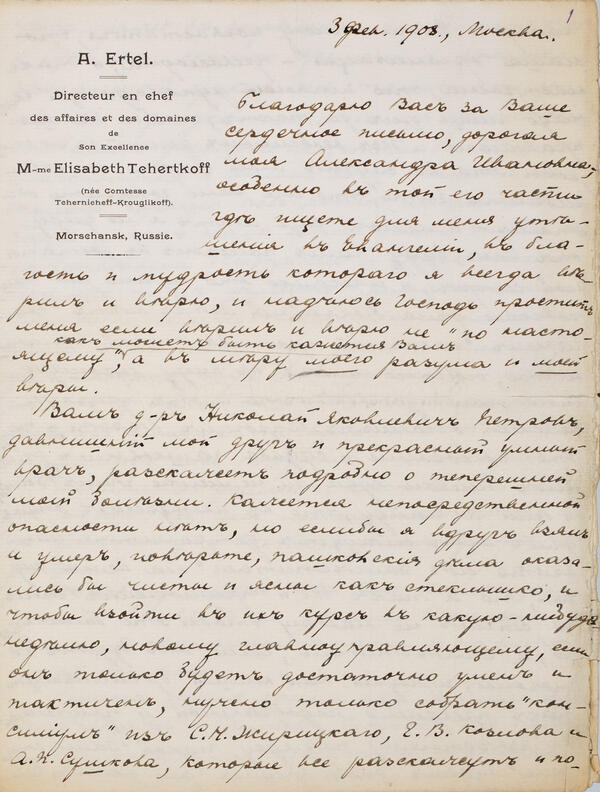 1
3 Фев. 1908., Москва.
A. Ertel.
Directeur en chef
des affaires et des domaines
de
Son Excellence
M-me Elisabeth Tchertkoff
(née Comtesse
Tchernicheff-Krouglikoff).
Morschansk, Russie.
Благодарю Васъ за Ваше
сердечное письмо, дорогая
моя Александра Ивановна,
особенно въ той его части
гдѣ ищете для меня утѣ-
шенія въ Евангеліи, въ бла-
гость и мудрость котораго я всегда вѣ-
рилъ и вѣрю, и надѣюсь Господь проститъ
меня если вѣрилъ и вѣрю не "по насто-
какъ можетъ быть кажется Вамъ
ящему", а въ мѣру моего разума и моей
вѣры.
Вамъ д-ръ Николай Яковлевичъ Петровъ,
давнишній мой другъ и прекрасный умный
врачъ, разскажетъ подробно о теперешней
моей болѣзни. Кажется непосредственной
опасности нѣтъ, но еслибы я вдругъ взялъ
и умеръ, повѣрьте, пашковскія дѣла оказа-
лись бы чисты и ясны какъ стеклышко, и
чтобы взойти въ ихъ курсъ въ какую-нибудь
недѣлю, новому главноуправляющему, если
онъ только будетъ достаточно уменъ и
тактиченъ, нужно только собрать "кон-
силіумъ" изъ С.Н. Жирицкаго, Г. В. Козлова и
А.К. Сушкова, которые все разскажутъ и по-